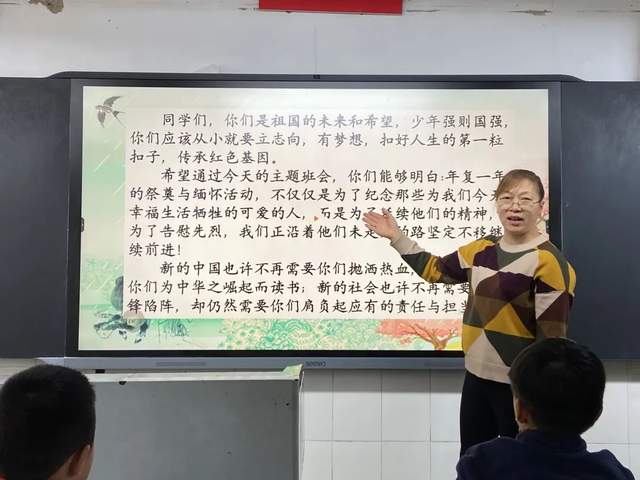 同学们，你们是祖国的未来和希望，少年强则国强，
你们应该从小就要立志向，有梦想，扣好人生的第一粒
扣子，传承红色基因。
希望通过今天的主题班会，你们能够明白：年复一年
的祭奠与缅怀活动，不仅仅是为了纪念那些为我们今
幸福生活牺牲的可爱的人，而是为了 续他们的精神，
为了告慰先烈，我们正沿着他们未走 路坚定不移继
续前进！
新的中国也许不再需要你们抛洒热血，
你们为中华之崛起而读书；新的社会也许不再需要
锋陷阵，却仍然需要你们肩负起应有的责任与担当